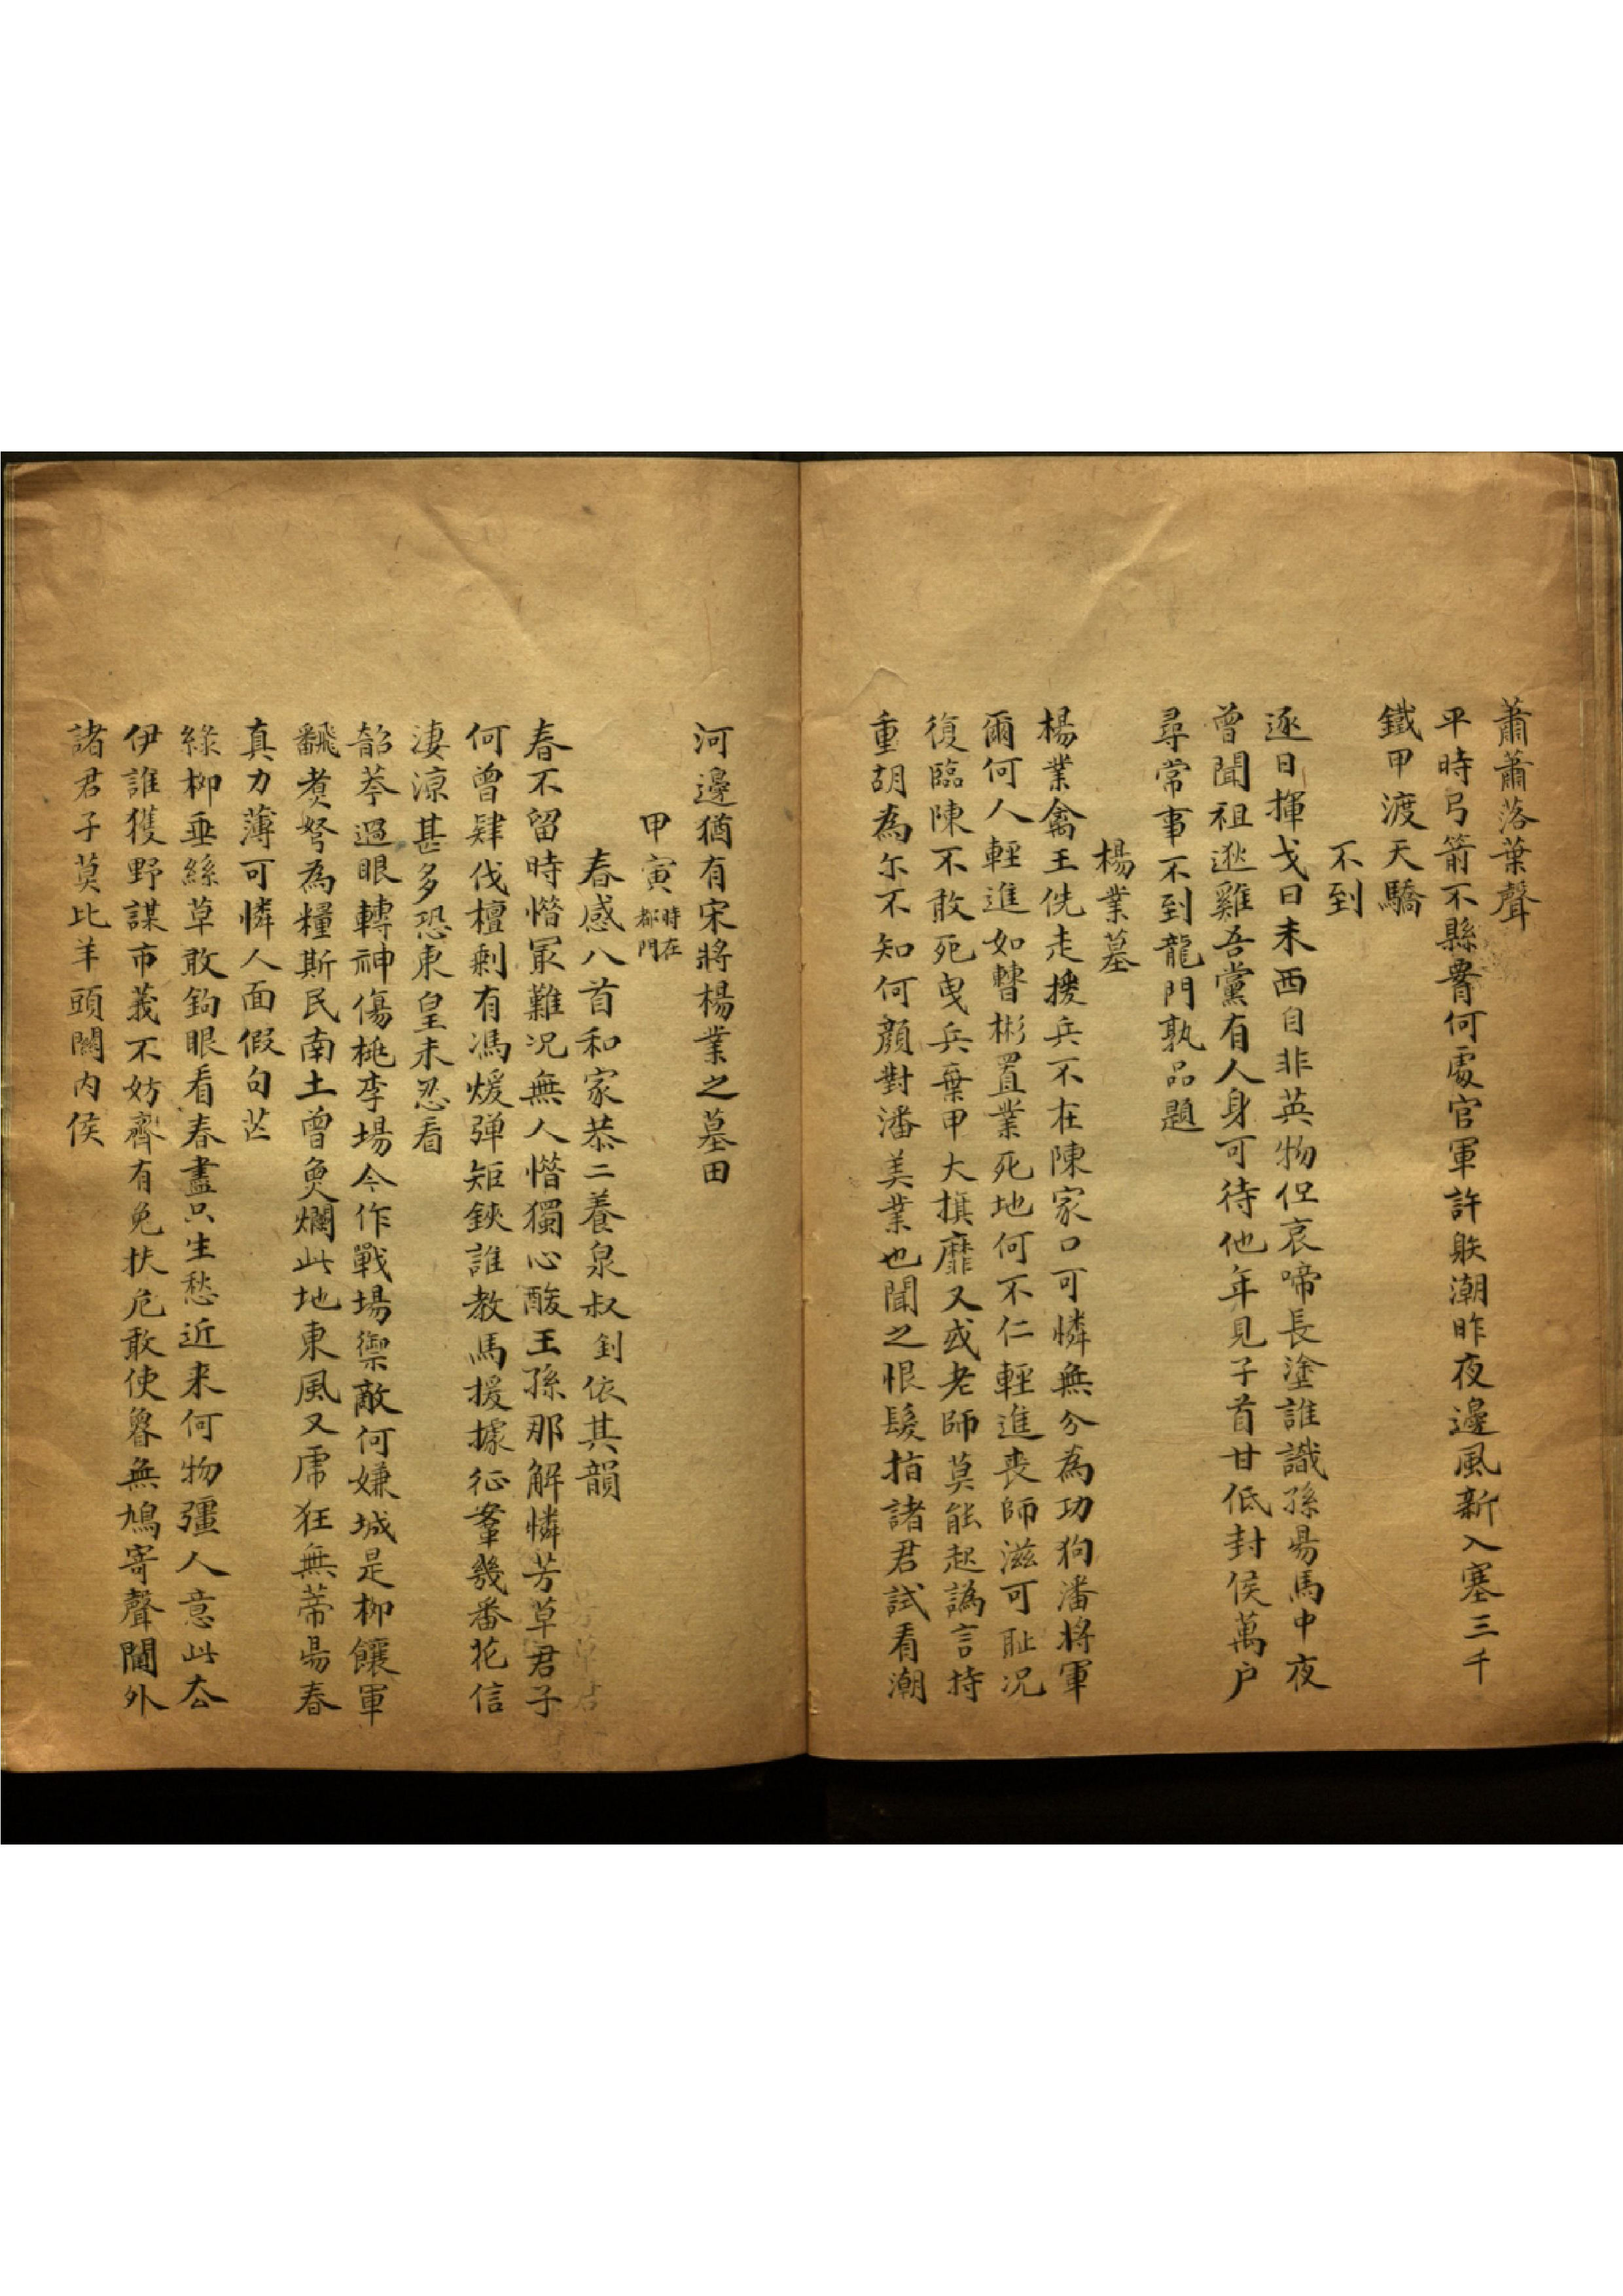 蕭蕭落葉聲
平時弓箭不縣腰何處官軍許躲潮昨夜邊風新入塞三千
鐵甲渡天驕
不到
逐日揮戈日未西自非英物但哀啼長塗誰識孫陽馬中夜
曾聞祖逖雞吾黨有人身可待他年見子首甘低封侯萬户
尋常事不到龍門孰品題
楊業墓
楊業禽王侁走援兵不在陳家口可憐無分為功狗潘將軍
爾何人輕進如瞽彬置業死地何不仁輕進喪師滋可耻況
復臨陳不敢死曳兵棄甲大旗靡又或老師莫能起譌言持
重胡為尔不知何顏對潘美業也聞之恨髮指諸君試看潮
河邊猶有宋將楊業之墓田
甲寅時在都門
春感八首和家恭二養泉叔釗依其韻
春不留時惜冣難況無人惜獨心酸王孫那解憐芳草君子
何曾肆伐檀剩有馮煖彈短鋏誰教馬援據征鞌幾番花信
淒涼甚多恐東皇未忍看
韶華過眼轉神傷桃李場今作戰場禦敵何嫌城是柳饟軍
飜煑弩為糧斯民南土曾魚爛此地東風又虎狂無蒂昜春
真力薄可憐人面假句芒
綠柳垂絲草敢鉤眼看春盡只生愁近来何物彊人意此去
伊誰獲野謀市義不妨齊有免扶危敢使魯無鳩寄聲閫外
諸君子莫比羊頭關内侯